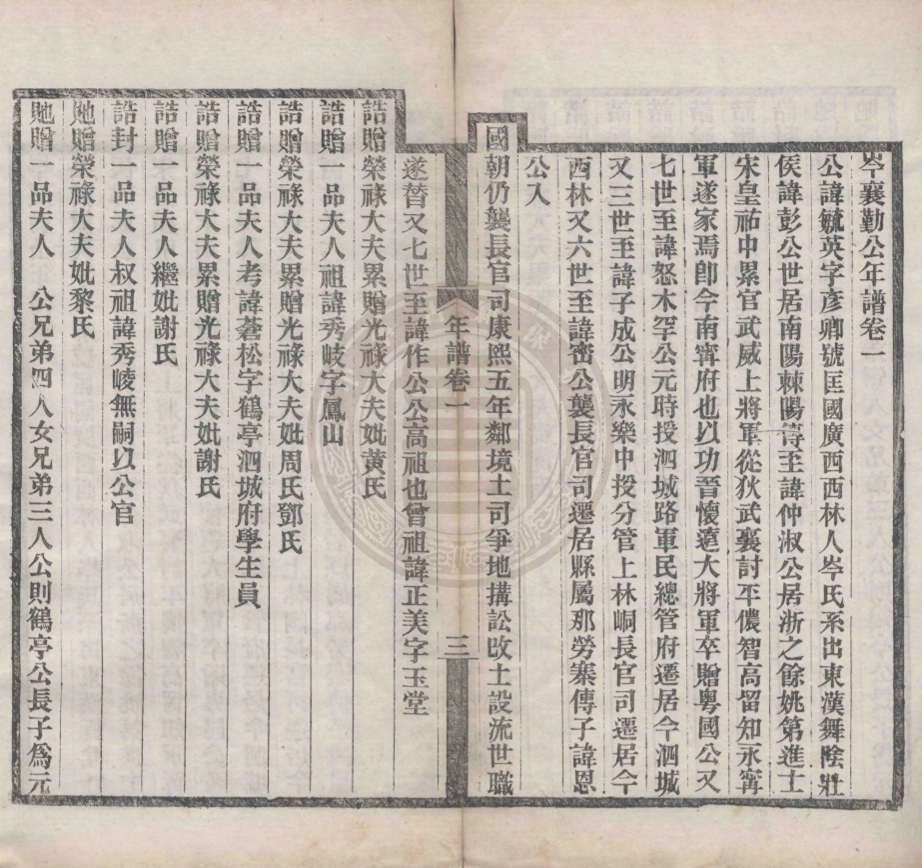 岑襄勤公年譜卷一
公諱毓英字彥卿號匡國廣西西林人岑氏系出東漢舞陰壯
侯諱彭公世居南陽棘陽傳至諱仲淑公居浙之餘姚第進士
宋皇祐中累官武威上將軍從狄武襄討平儂智高留知永寗
軍遂家焉卽今南寗府也以功晉懷遠大將軍卒贈粵國公又
七世至諱怒木罕公元時投泗城路軍民總管府遷居今泗城
又三世至諱子成公明永樂中投分管上林峒長官司遷居今
西林又六世至諱密公襲長官司遷居縣屬那勞寨傳子諱恩
公入
國朝仍襲長官司康熙五年鄰境土司爭地搆訟改土設流世職
遂替又七世至諱作公公高祖也曾祖諱正美字玉堂
誥贈榮祿大夫累贈光祿大夫妣黄氏
誥贈一品夫人祖諱秀岐字鳳山
誥贈榮祿大夫累贈光祿大夫妣周氏鄧氏
誥贈一品夫人考諱蒼松字鶴亭泗城府學生員
誥贈榮祿大夫累贈光祿大夫妣謝氏
誥贈一品夫人繼妣謝氏
誥封一品夫人叔祖諱秀崚無嗣以公官
貤贈榮祿大夫妣黎氏
貤贈一品夫人 公兄弟四人女兄弟三人公則鶴亭公長子爲元
年譜卷一
三